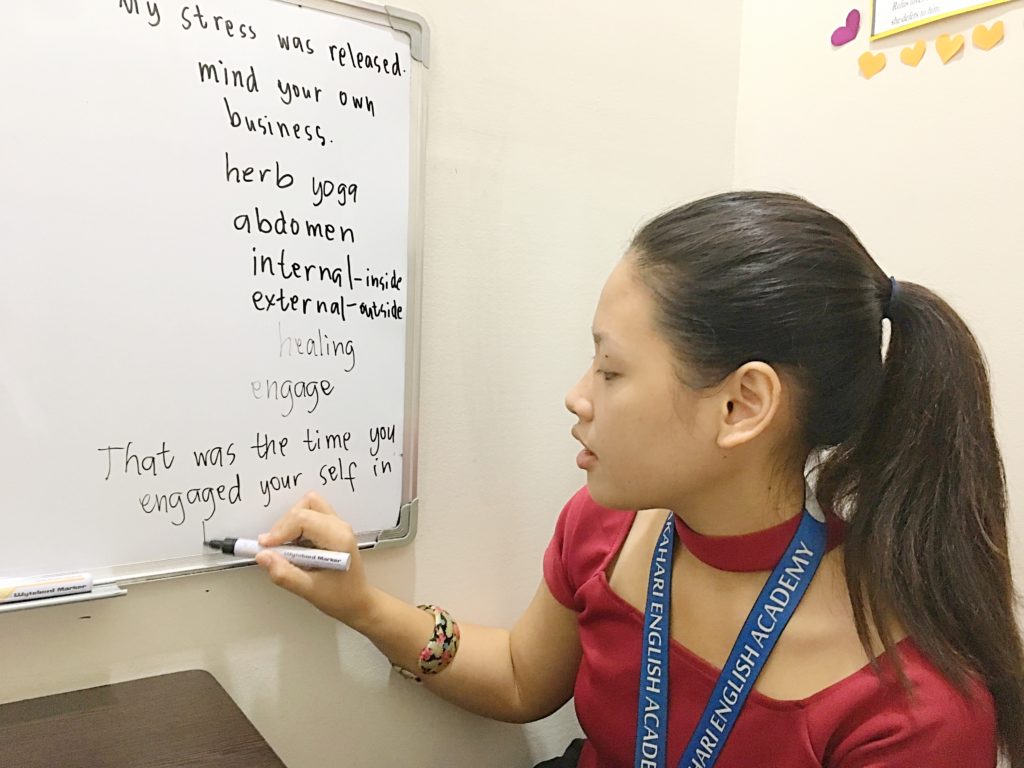 My stress was released.
mind your own
business.
herb yoga
abdomen
internal-inside
external-outside
healing
engage
That was the time you
engaged your self in
Whyteboard Marker
Whyteboard Marker
KAHARI ENGLISH ACADE
HARI ENGLISH ACADEMY
she defers to him.